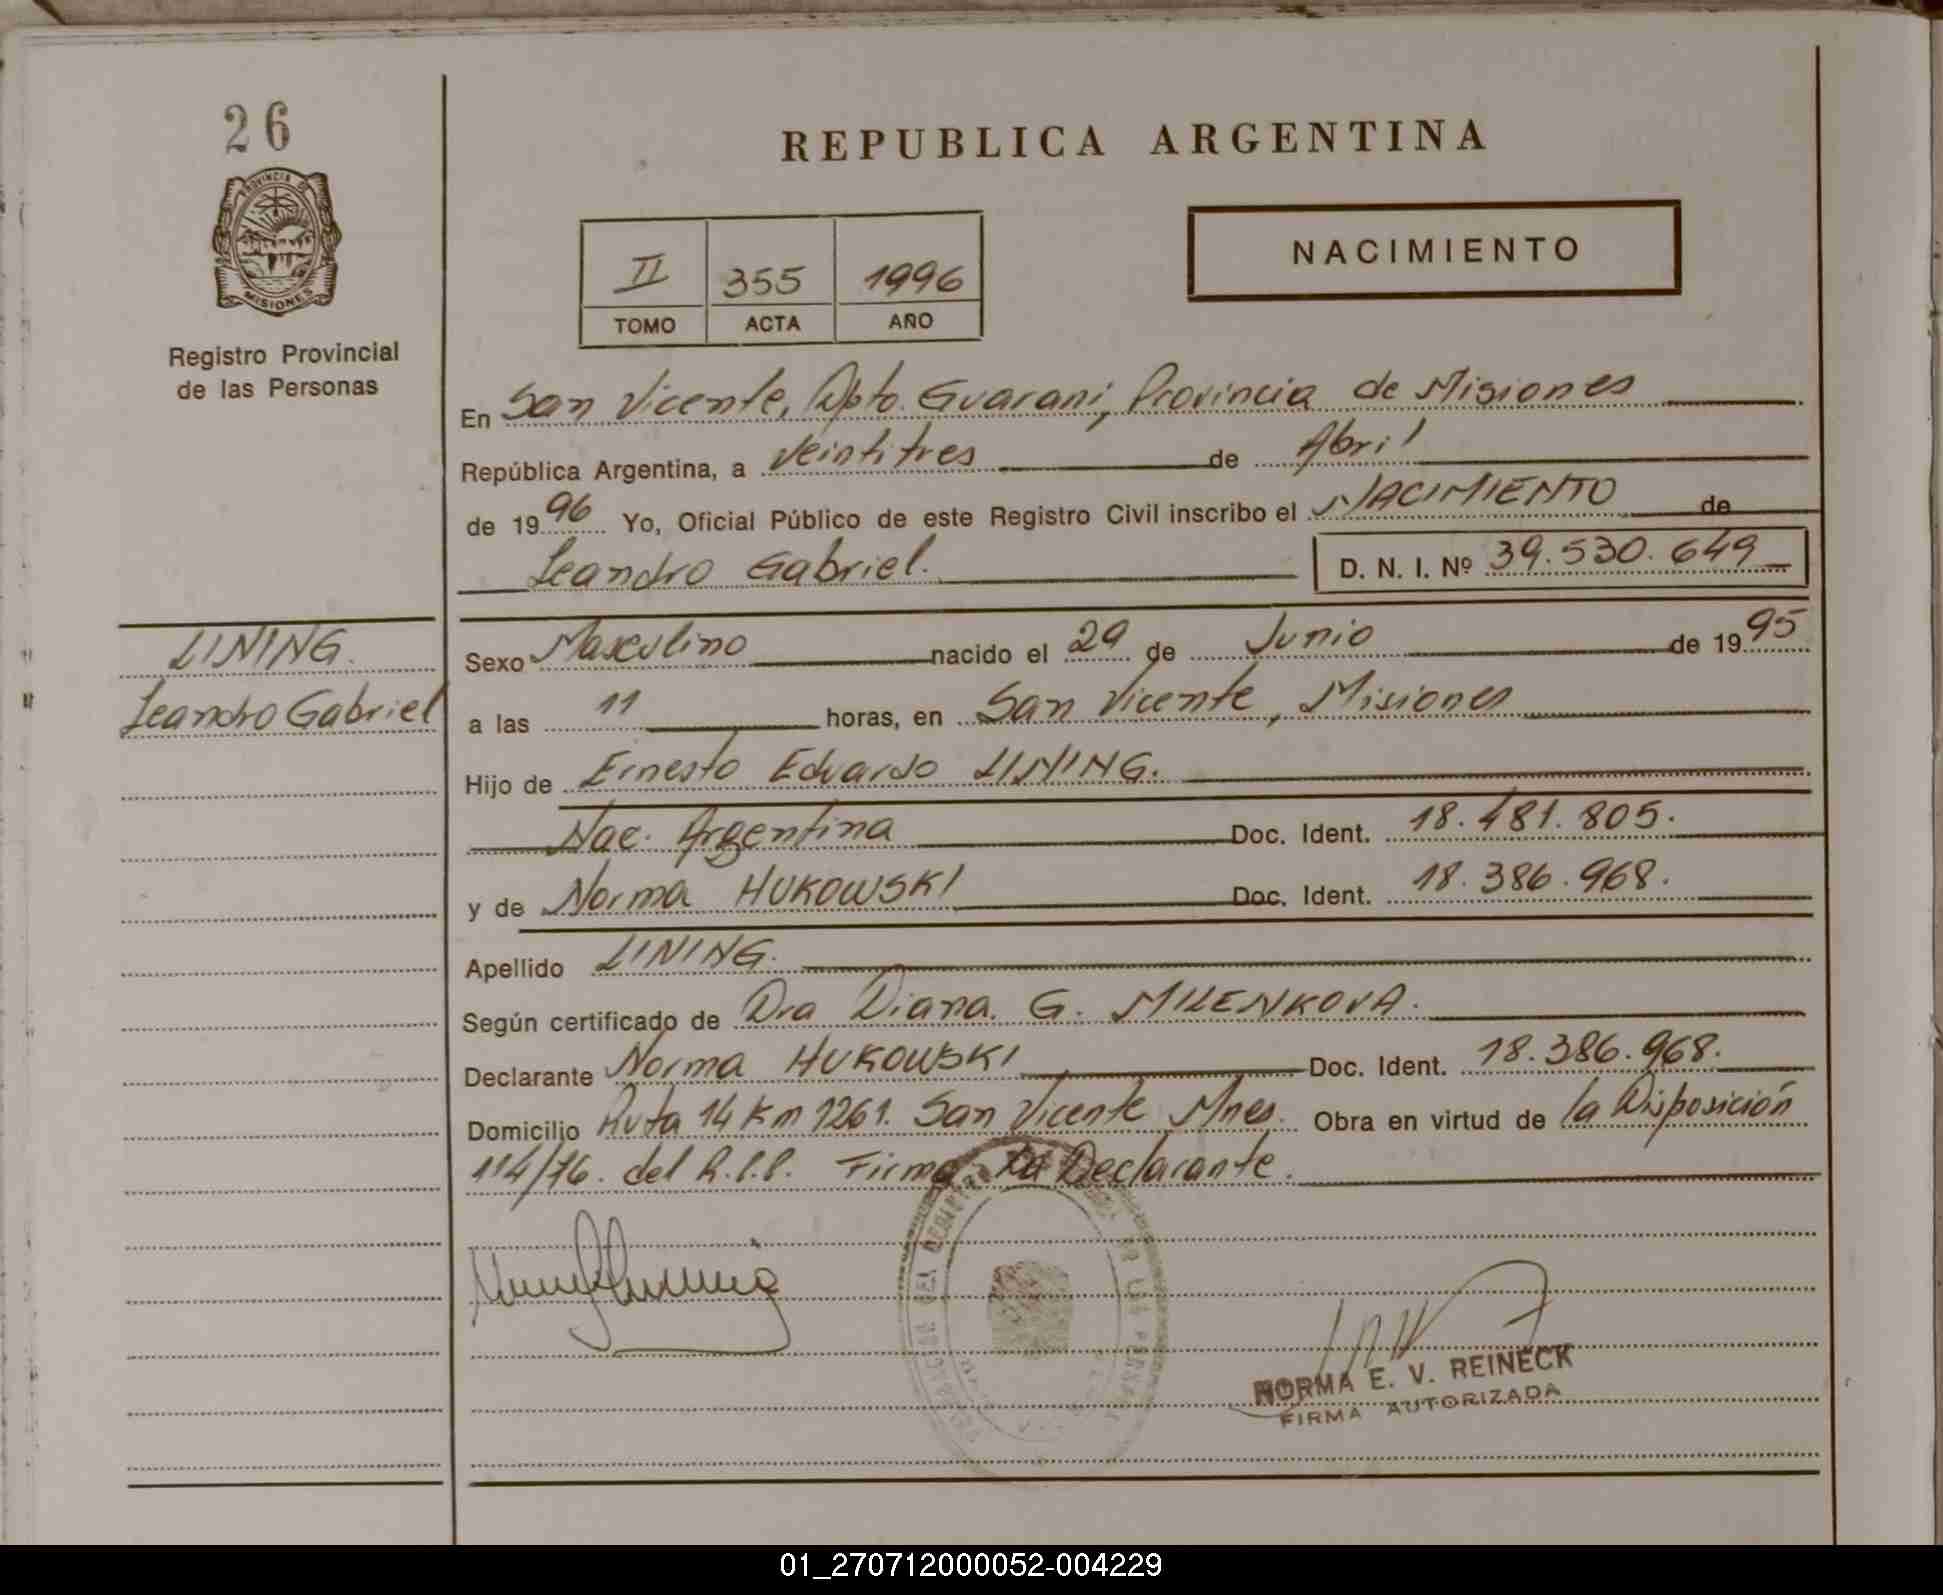 26
PROVINCIA DE
MISIONES
Registro Provincial
de las Personas
REPUBLICA ARGENTINA
II 355 1996
TOMO ACTA AÑO
NACIMIENTO
En San Vicente, Dpto. Guarani, Provincia de Misiones
República Argentina, a Veintitres de Abril
de 1996 Yo, Oficial Público de este Registro Civil inscribo el NACIMIENTO de
Leandro Gabriel. D. N. I. Nº 39.530.649
LINING.
Leandro Gabriel
Sexo Masculino nacido el 29 de Junio de 1995
a las 11 horas, en San Vicente, Misiones
Hijo de Ernesto Eduardo LINING.
Nac. Argentina Doc. Ident. 18.481.805.
y de Norma HUKOWSKI Doc. Ident. 18.386.968.
Apellido LINING.
Según certificado de Dra Diana. G. MILENKOVA.
Declarante Norma HUKOWSKI Doc. Ident. 18.386.968.
Domicilio Ruta 14 Km 1261. San Vicente Mnes. Obra en virtud de la Disposición
114/76. del R.P.P. Firma La Declarante.
NORMA E. V. REINECK
FIRMA AUTORIZADA
01_270712000052-004229